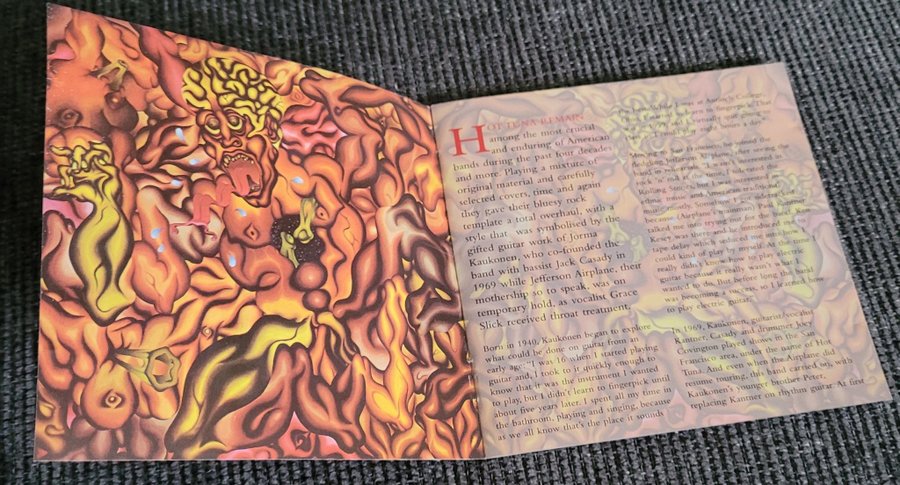 HOT TUNA REMAIN
among the most crucial
and enduring of American
bands during the past four decades
and more. Playing a mixture of
original material and carefully
selected covers, time and again
they gave their bluesy rock
template a total overhaul, with a
style that was symbolised by the
gifted guitar work of Jorma
Kaukonen, who co-founded the
band with bassist Jack Casady in
1969 while Jefferson Airplane, their
mothership so to speak, was on
temporary hold, as vocalist Grace
Slick received throat treatment.
Born in 1940, Kaukonen began to explore
what could be done on guitar from an
early age. "I was 15 when I started playing
guitar and I took to it quickly enough to
know that it was the instrument I wanted
to play, but I didn't learn to fingerpick until
about five years later. I spent all my time
the bathroom, playing and singing, because
as we all know that's the place it sounds
while I was at Antioch College
learn to fingerpick. That
virtually quit going
I could play eight hours a day."
Moving to San Francisco, he joined the
fledgling Jefferson Airplane,
rock 'n' roll at the time. I tolerated the
Rolling Stones, but I was
ethnic music and American traditional
music mostly. Somehow, Paul Kantner
(became Airplane's mainman)
talked me into trying out for the band.
Kesey was there and he introduced me to
the delay which seduced me because I
could kind of play by myself. At the time
really didn't know how to play electric
guitar because it really wasn't what I
wanted to do. But before long the band
was becoming a success, so I learned how
to play electric guitar."
In 1969, Kaukonen, guitarist/vocalist
Kantner, Casady and drummer Joey
Covington played shows in the
area, under the name of Hot
Tuna. And even when the Airplane did
resume touring, the band carried on, with
Kaukonen's younger brother Peter,
replacing Kantner on rhythm guitar. At first